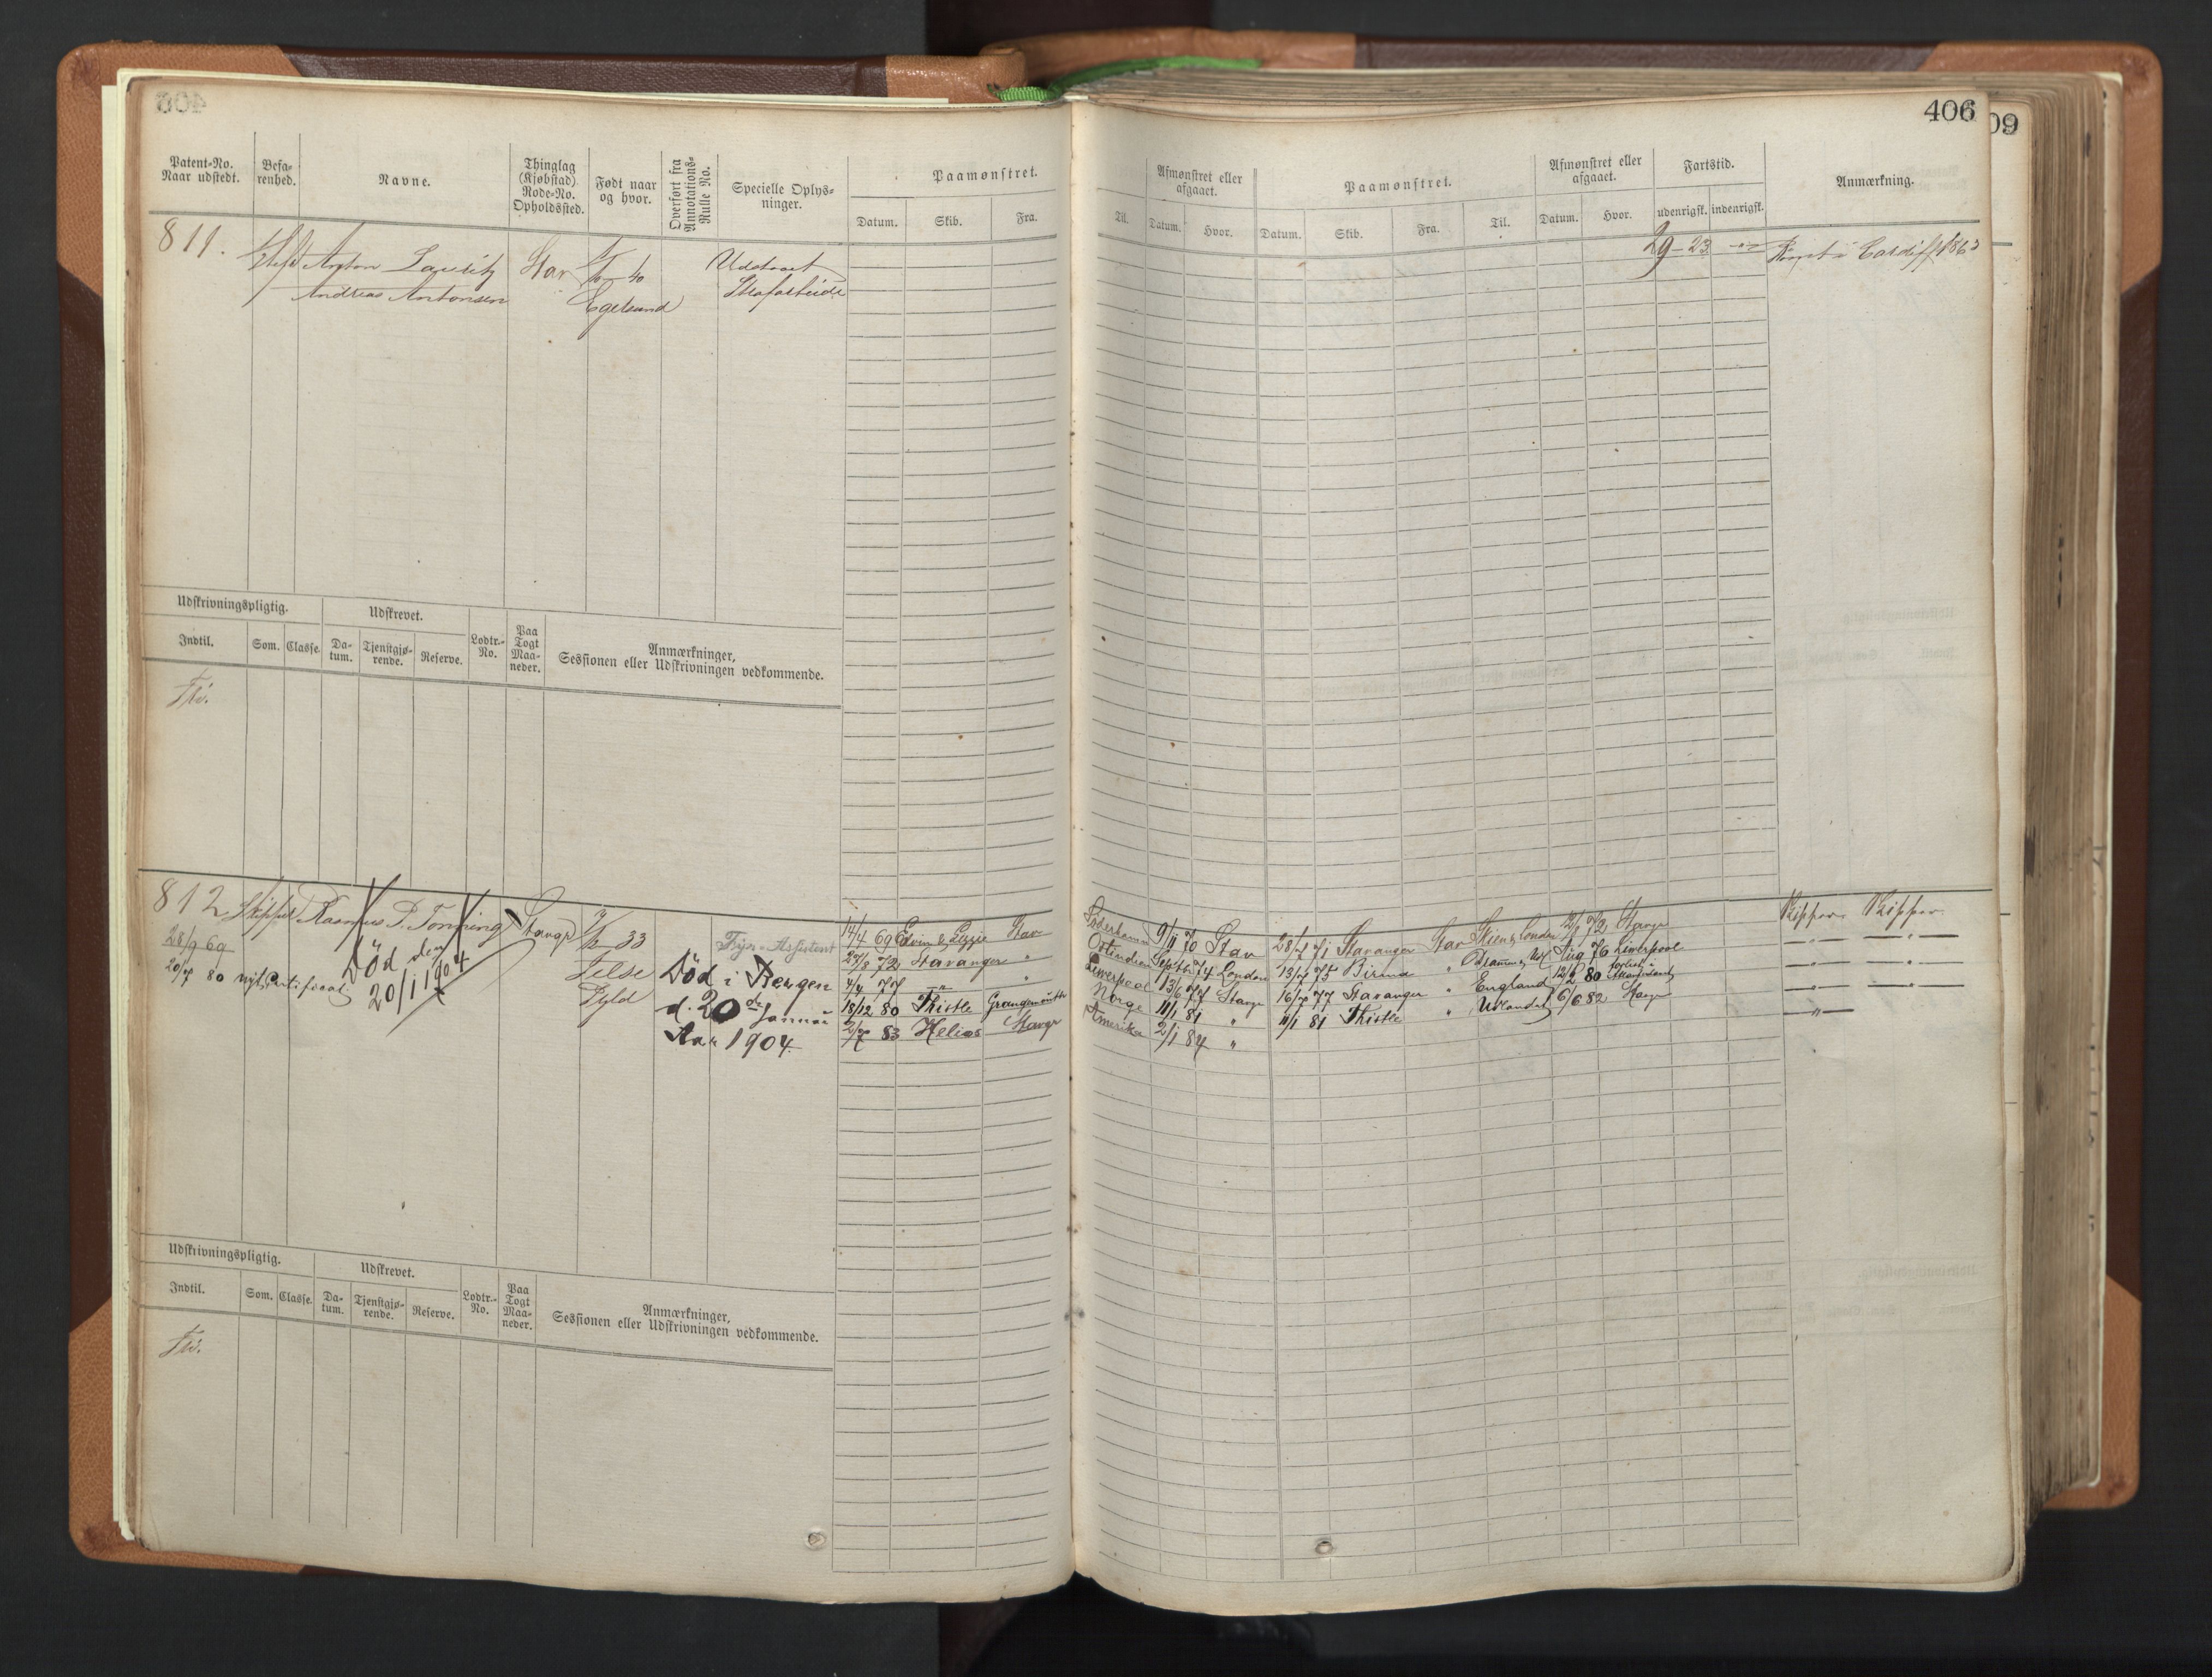 406
09
Patent-No. Naar udstedt.
Befa-renhed.
Navne.
Thinglag (Kjøbstad) Rode-No. Opholdssted.
Født naar og hvor.
Overført fra Annotations-Rulle No.
Specielle Oplys-ninger.
Paamønstret.
Datum. Skib. Fra.
Til.
Afmønstret eller afgaaet.
Datum. Hvor.
Paamønstret.
Datum. Skib. Fra. Til.
Afmønstret eller afgaaet.
Datum. Hvor.
Fartstid.
udenrigsk. indenrigsk.
Anmærkning.
811. Anton Lauritz Stav
Andreas Antonsen
Egersund
Udstaaet
Strafarbeide
29-23
Rømt i Cardiff 1863
Udskrivningspligtig. Udskrevet.
Indtil. Som. Classe. Da-tum. Tjenstgjø-rende. Reserve. Lodtr.-No. Paa Togt Maa-neder.
Anmærkninger,
Sessionen eller Udskrivningen vedkommende.
Fri.
812 Skipper Rasmus P. Tonning Stavgr
28/9 69
20/7 80 nyt Certificat
Død den
20/1 1904
33
Fyr-Assistent
Død i Bergen
d. 20de Januar
Aar 1904.
14/4 69 Edvin & Lizzie Stav Söderhamn 9/11 70 Stav 28/7 71 Stavanger Stav Skien & London 72 Stavgr Skipper Skipper
27/8 72 Stavanger " Ostindien Septbr 74 London 13/7 75 " Aug 76 Liverpool
4/4 77 " " Liverpool 13/6 77 Stavgr 16/7 77 Stavanger " England 12/2 80 forlist i
18/12 80 Thistle Grangemouth Norge 11/1 81 " 11/1 81 Thistle " Udlandet 6/6 82 Stavgr
2/7 83 Helios Stavgr Amerika 2/1 84 "
Udskrivningspligtig. Udskrevet.
Indtil. Som. Classe. Da-tum. Tjenstgjø-rende. Reserve. Lodtr.-No. Paa Togt Maa-neder.
Anmærkninger,
Sessionen eller Udskrivningen vedkommende.
Fri.